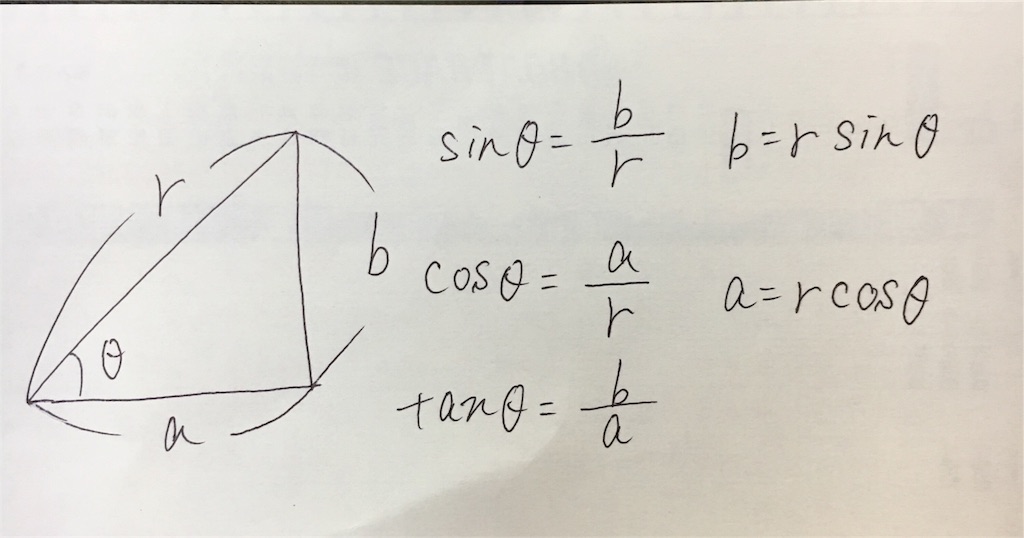 r
b
θ
a
sinθ = b/r b = r sinθ
cosθ = a/r a = r cosθ
tanθ = b/a